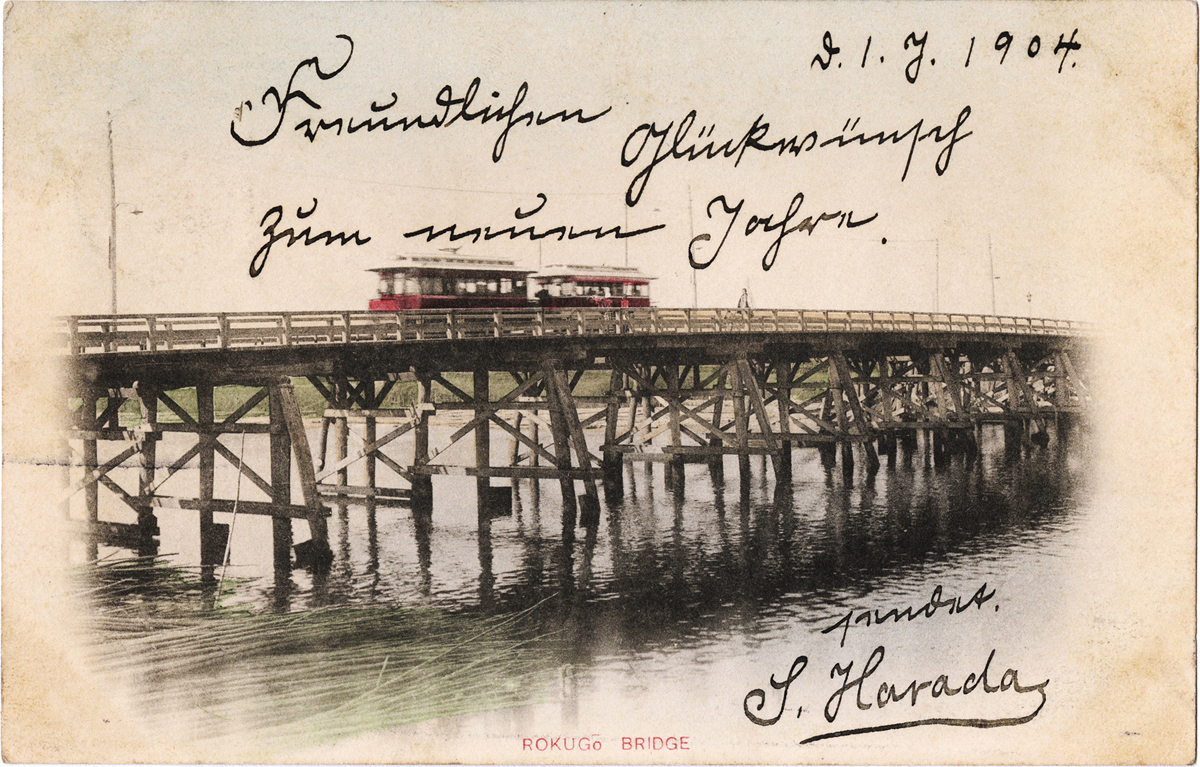 d. 1. J. 1904.
Freundlichen Glückwünsch
zum neuen Jahre.
sendet.
S. Harada
ROKUGō BRIDGE